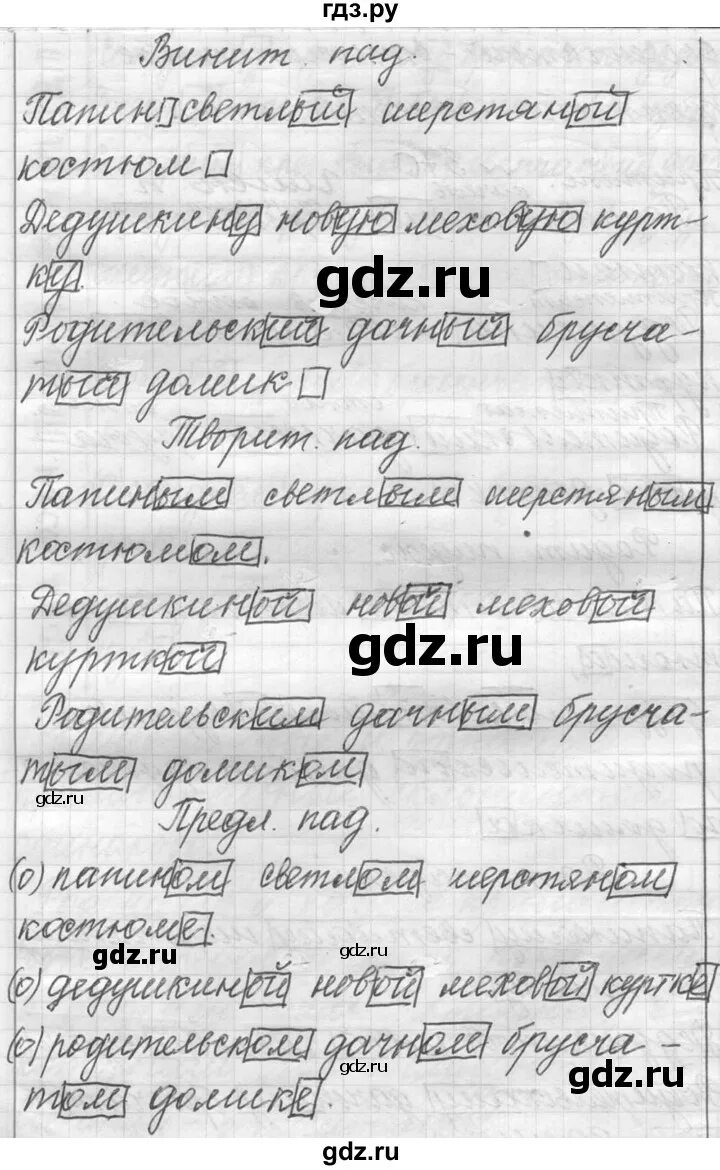 гдз.ру
Винит. пад.
Папин светлый шерстяной
костюм
Дедушкину новую меховую курт-
ку.
gdz.ru
Родительский дачный брусча-
тый домик
Творит. пад.
Папиным светлым шерстяным
костюмом.
Дедушкиной новой меховой
gdz.ru
курткой
Родительским дачным брусча-
тым домиком
gdz.ru
Предл. пад.
(о) папином светлом шерстяном
костюме.
gdz.ru
gdz.ru
(о) дедушкиной новой меховой куртке
(о) родительском дачном брусча-
gdz.ru
gdz.ru
том домике.
gdz.ru